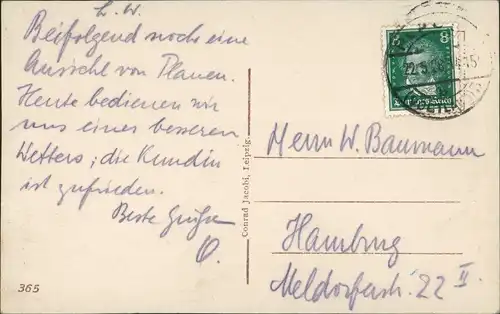 L. W.
Beifolgend noch eine
Aussicht von Plauen.
Heute bedienen wir
uns eines besseren
Wetters; die Kundin
ist zufrieden.
Beste Grüße
O.
365
Conrad Jacobi, Leipzig.
8
Herrn W. Baumann
Hamburg
Meldorferstr. 22 II.